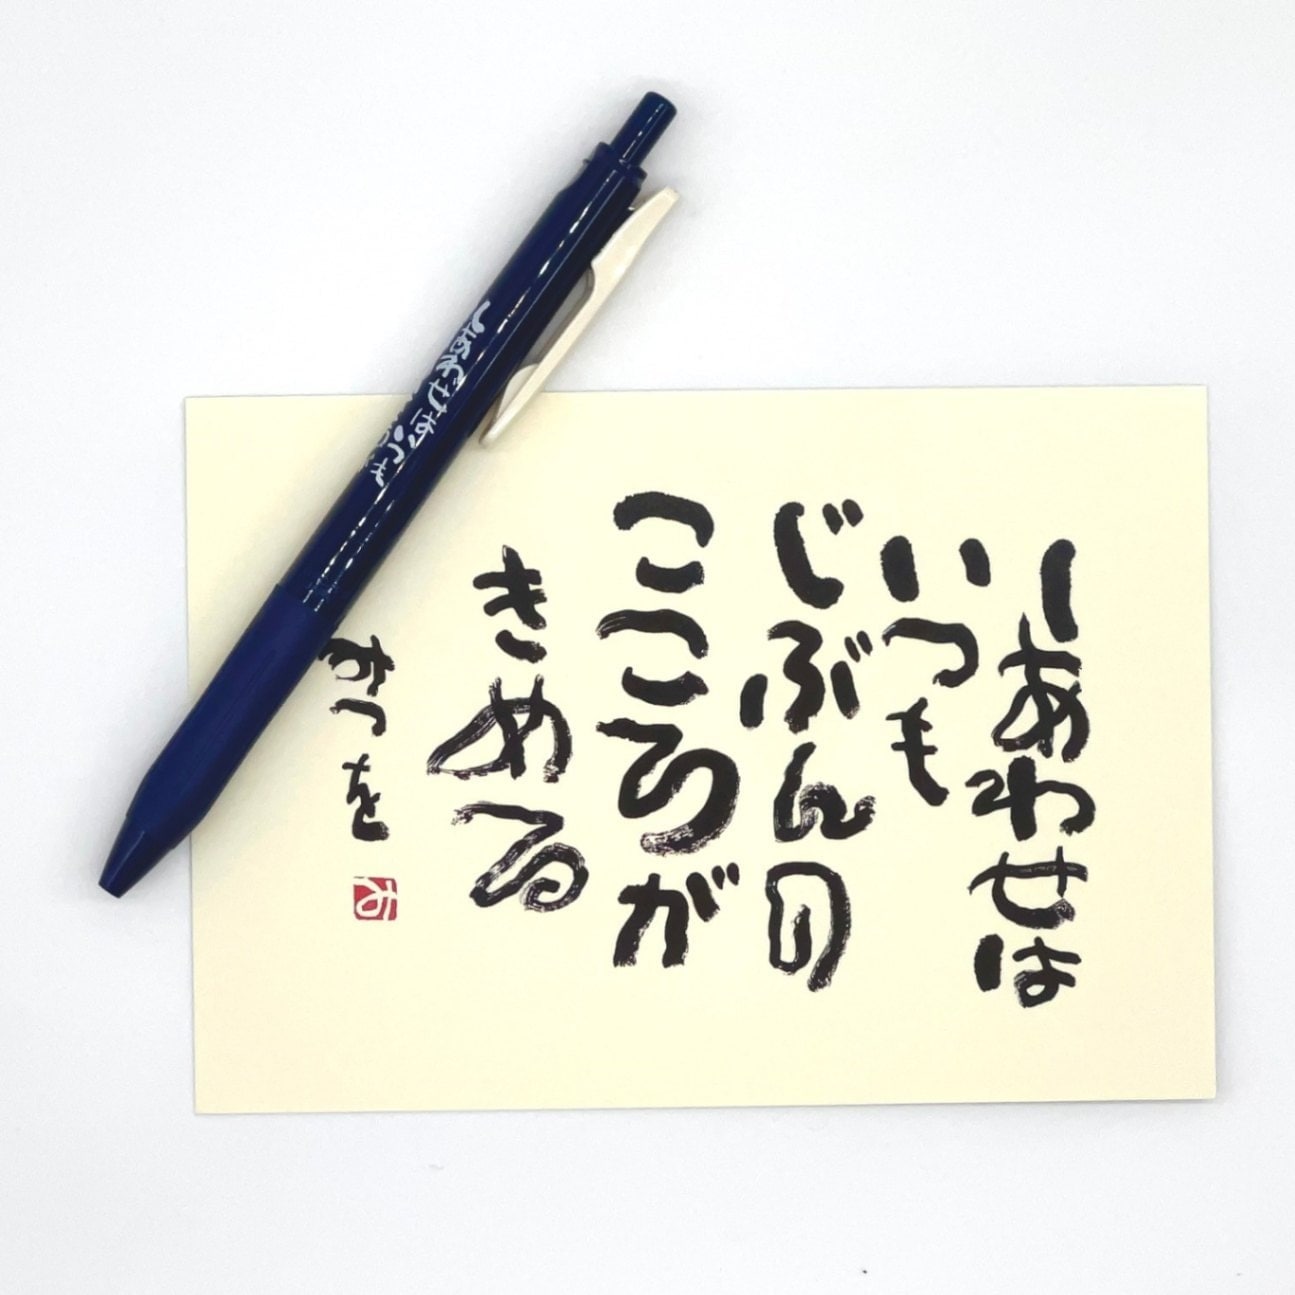 しあわせは
いつも
じぶんの
こころが
きめる
みつを
しあわせはいつも